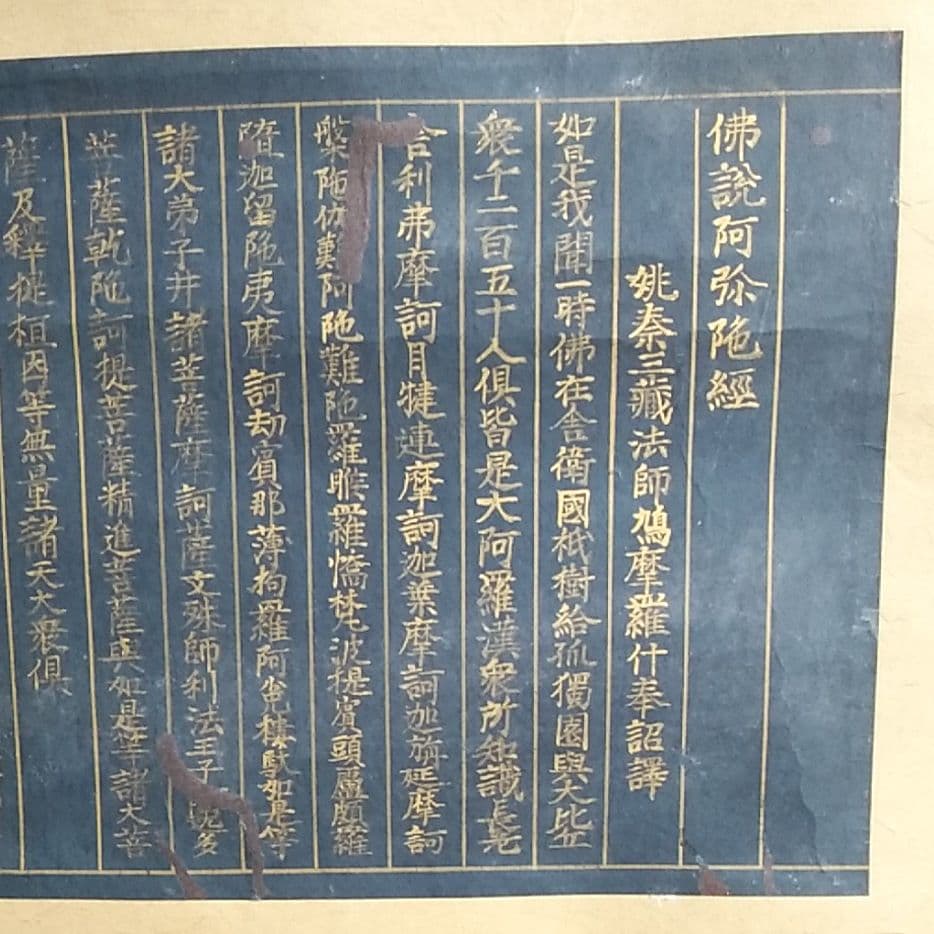 佛說阿弥陁經
姚秦三藏法師鳩摩羅什奉詔譯
如是我聞一時佛在舍衛國祇樹給孤獨園與大比丘
衆千二百五十人俱皆是大阿羅漢衆所知識長老
舍利弗摩訶目犍連摩訶迦葉摩訶迦旃延摩訶
槃陁阿陁難陁羅睺羅憍梵波提賓頭盧頗羅
隨迦留陁夷摩訶劫賓那薄拘羅阿㝹樓馱如是等
諸大弟子并諸菩薩摩訶薩文殊師利法王子逸多
菩薩乾陁訶提菩薩精進菩薩與如是等諸大菩
薩及釋提桓因等無量諸天大衆俱